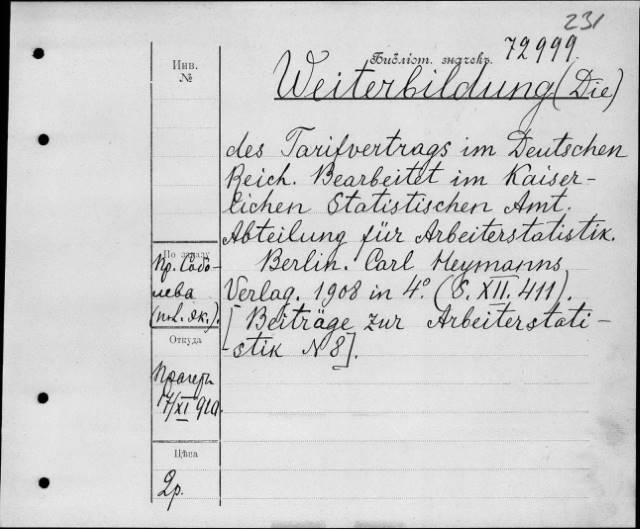 231
Библіот. значекъ 72999
Инв.
№
Weiterbildung (Die)
des Tarifvertrags im Deutschen
Reich. Bearbeitet im Kaiser-
lichen Statistischen Amt.
Abteilung für Arbeiterstatistik.
Berlin. Carl Heymanns
Verlag. 1908 in 4º. (S. XII. 411).
[Beiträge zur Arbeiterstati-
-stik N 8].
По заказу
Пр. Собо-
лева
Откуда
Прагеръ
17/XI 910.
Цѣна
2р.